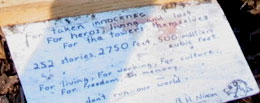 For taken innocence
For heros, living and lost
For the towers themselves
252 stories, 2,750 feet, 500 million
cubic
For living, For working, For culture,
For freedom, in memory.
don't run our world